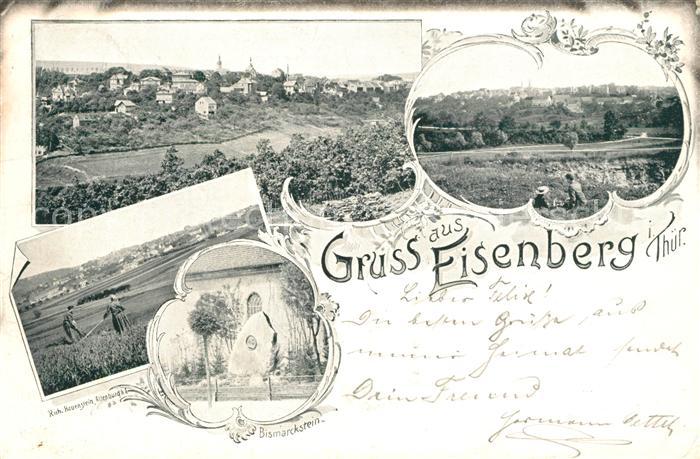 Gruss aus Eisenberg i. Thür.
Lieber Felix!
Die besten Grüße aus
meiner Heimat sendet
Dein Freund
Hermann
Rich. Hauenstein, Altenburg S.A.
Bismarckstein.